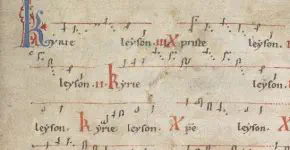 Kyrie leyson. iii. Xpriste leyson. ii
leyson. ii. kyrie leyson.
leyson. kyrie leyson. Xpe leyson.